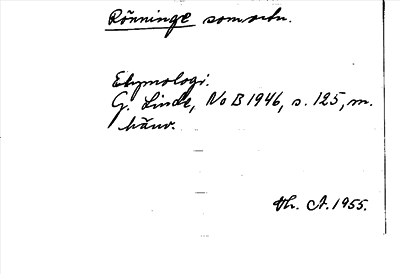 Rönninge som ortn.
Etymologi.
G. Linde, No B 1946, s. 125, m.
hänv.
Th. A. 1955.